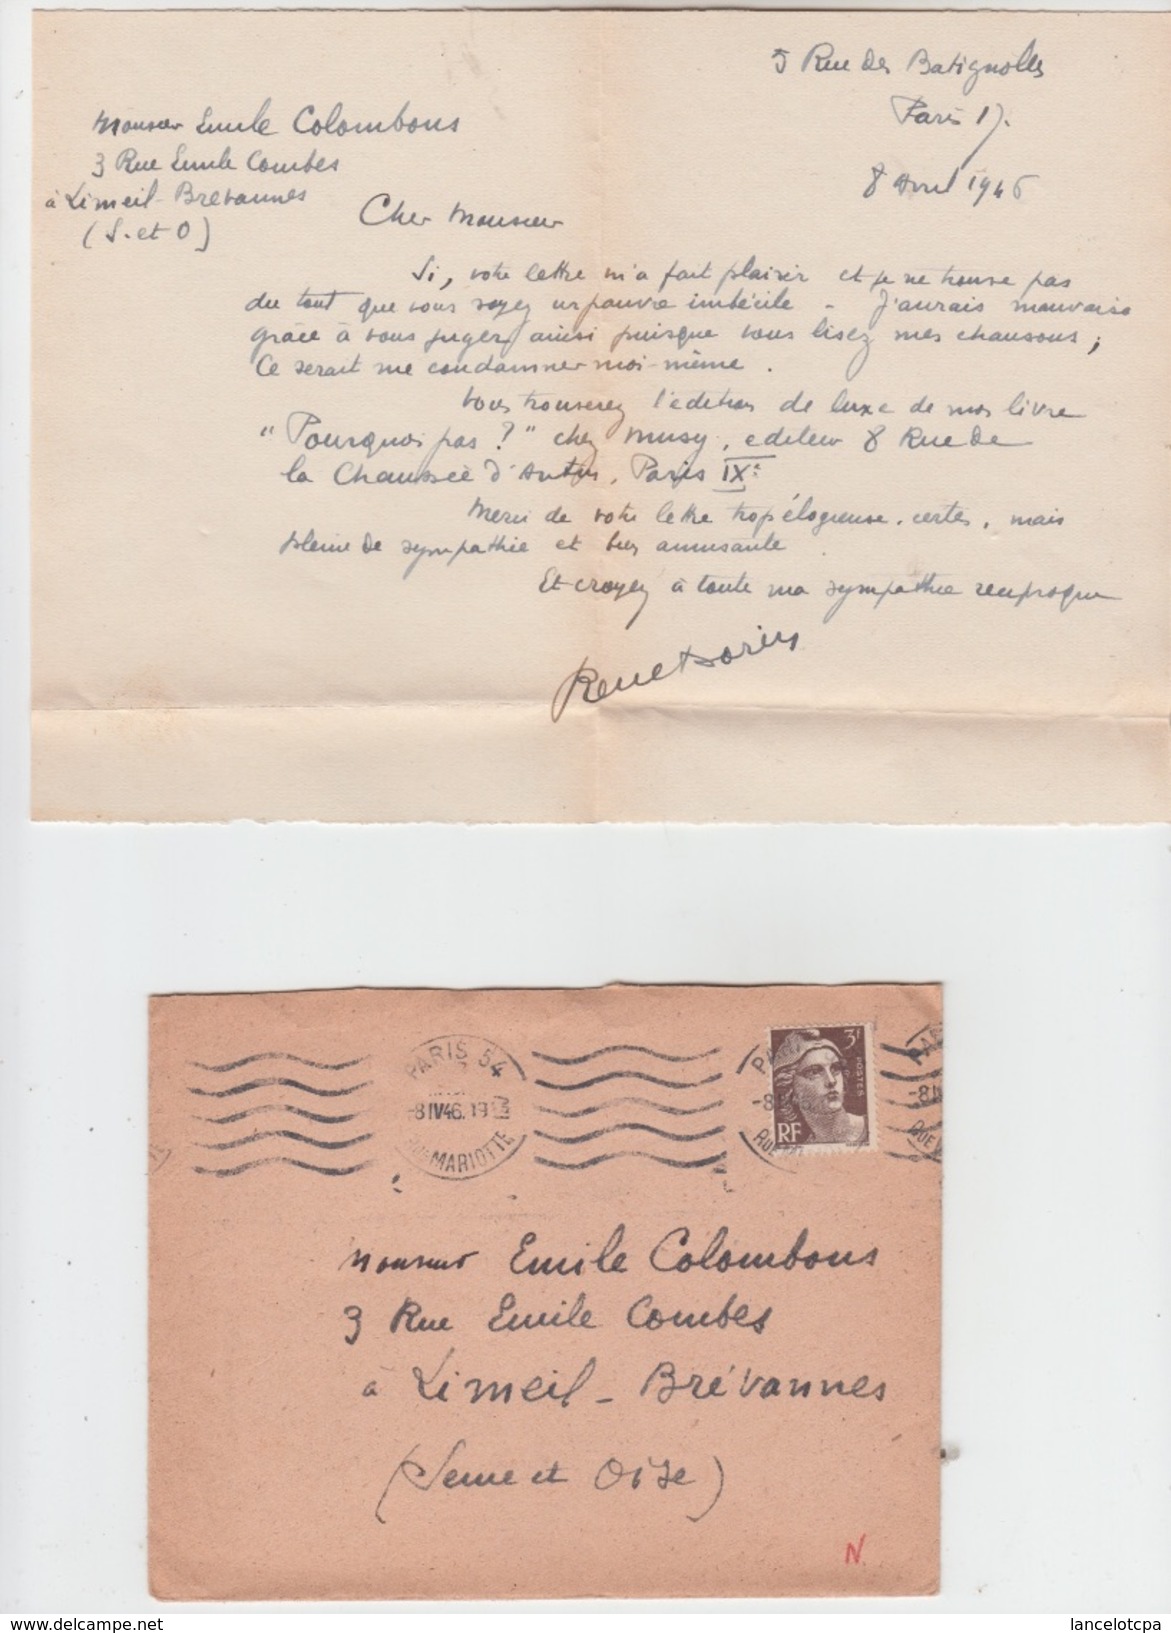 5 Rue des Batignolles
Paris 17.
8 Avril 1946
Monsieur Emile Colombons
3 Rue Emile Combes
à Limeil-Brevannes
(S. et O)
Cher Monsieur
Si, votre lettre m'a fait plaisir et je ne trouve pas
du tout que vous soyez un pauvre imbécile - J'aurais mauvaise
grâce à vous juger ainsi puisque vous lisez mes chansons ;
Ce serait me condamner moi-même .
Vous trouverez l'edition de luxe de mon livre
"Pourquoi pas ?" chez Musy, editeur 8 Rue de
la Chaussée d'Antin, Paris IXe
Merci de votre lettre trop élogieuse, certes, mais
pleine de sympathie et bien amusante .
Et croyez à toute ma sympathie reciproque
René Dorin
PARIS 54
-8 IV 46. 19
RUE MARIOTTE
3F
POSTES
RF
Monsieur Emile Colombons
3 Rue Emile Combes
à Limeil - Brévannes
(Seine et Oise)
N
www.delcampe.net
lancelotcpa